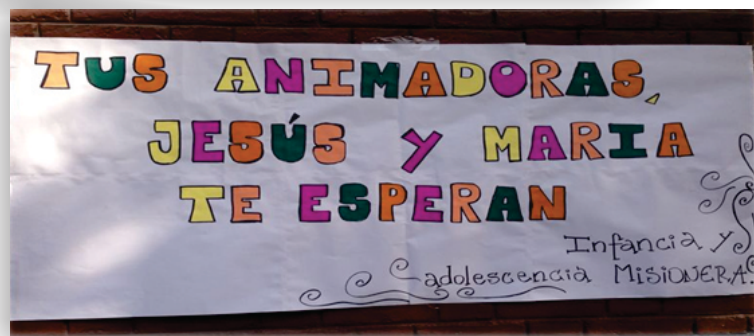 TUS ANIMADORAS,
JESÚS Y MARIA
TE ESPERAN
Infancia y
adolescencia MISIONERA.